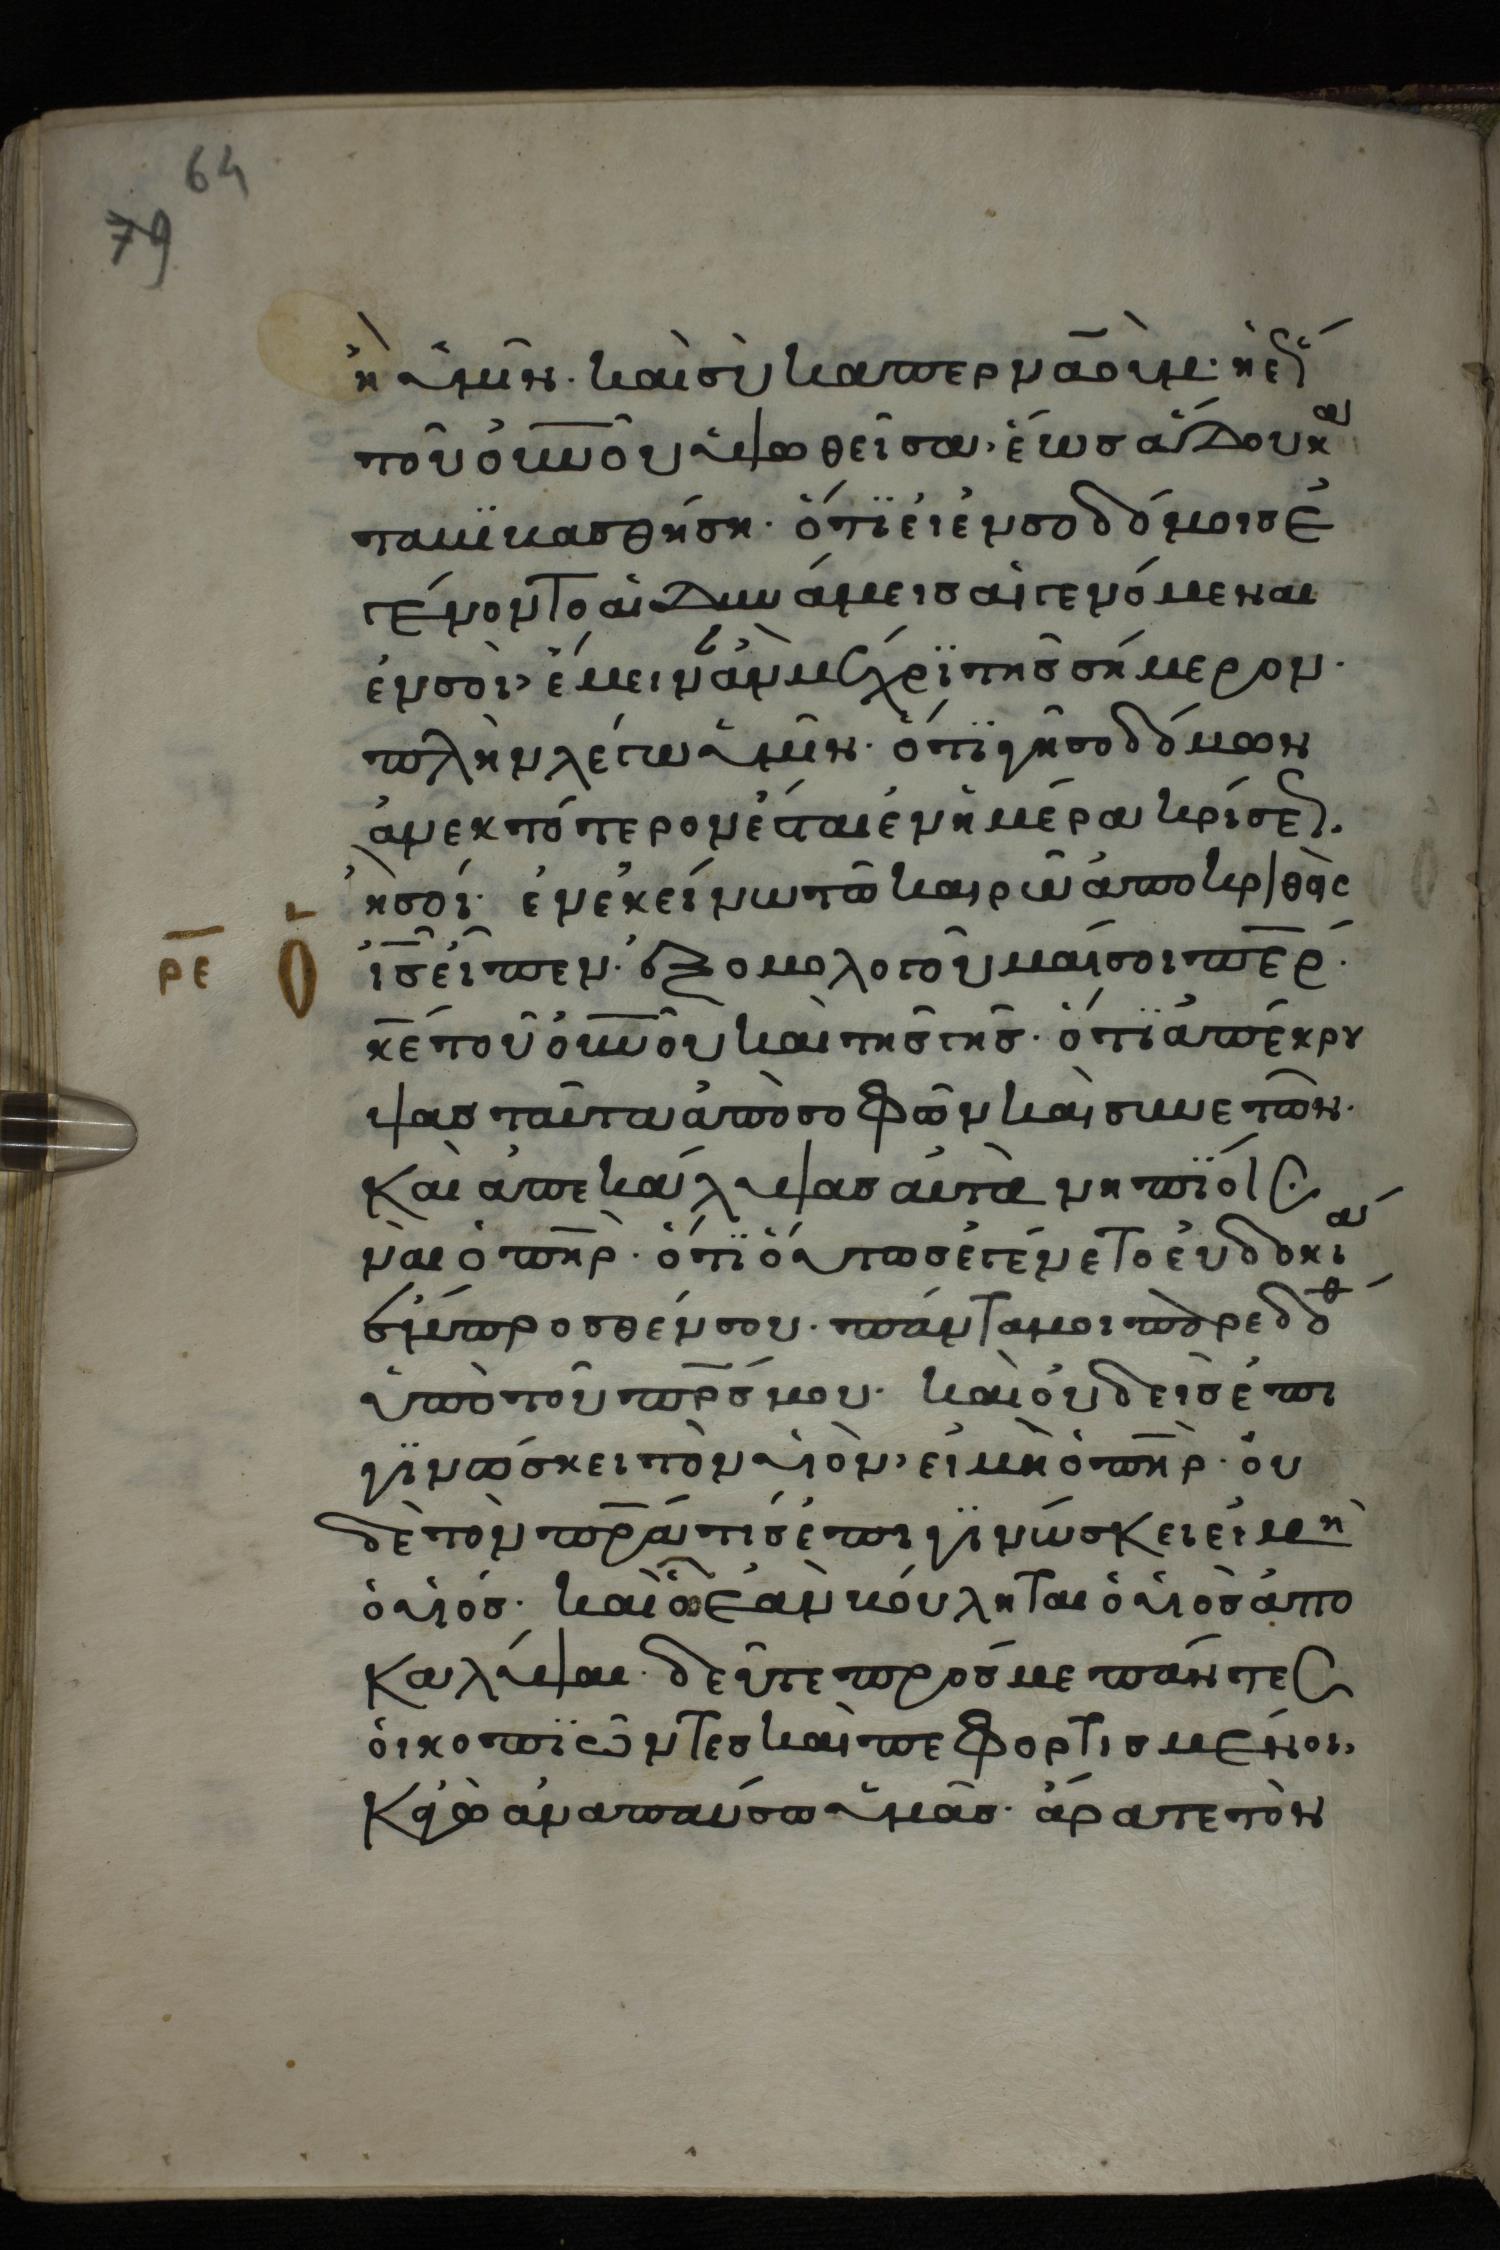 64
79
ἢ ὑμῖν· καὶ σὺ καπερναοὺμ· ἡ ἕως
τοῦ οὐ̅νο̅ῦ ὑψωθεῖσα, ἕως ἅδου κα
ταβϊβασθήση· ὅτϊ εἰ ἐν σοδόμοις ἐ
γένοντο αἱ δυνάμεις αἱ γενόμεναι
ἐν σοὶ, ἔμεινον ἂν μέχρϊ τῆς σήμερον·
πλὴν λέγω ὑμῖν· ὅτϊ γῆ σοδόμων
ἀνεκτότερον ἔσται ἐν ἡμέρα κρίσεως·
ἢ σοί· ἐν ἐκείνω τῶ καιρῶ ἀποκριθεὶς
ρ̅ε̅ ὁ ι̅ς̅ εἶπεν· ἐξομολογοῦμαί σοι π̅ε̅ρ̅·
κ̅ε̅ τοῦ οὐ̅νο̅ῦ καὶ τῆς γῆς· ὅτϊ ἀπέκρυ
ψας ταῦτα ἀπὸ σοφῶν καὶ συνετῶν·
καὶ ἀπεκάλυψας αὐτὰ νηπϊοις·
ναὶ ὁ π̅η̅ρ̅· ὅτϊ οὕτως ἐγένετο εὐδοκία
ἔμπροσθέν σου· πάντα μοι παρεδόθ
ὑπὸ τοῦ π̅ρ̅ς̅ μου· καὶ οὐδεὶς ἐπι
γϊνώσκει τὸν υἱὸν, εἰ μὴ ὁ π̅η̅ρ̅· οὐ
δὲ τὸν π̅ρ̅α̅ τίς ἐπιγϊνώσκει εἰ μὴ
ὁ υἱός· καὶ ᾧ ἐὰν βούληται ὁ υἱὸς ἀπο
καλύψαι· δεῦτε πρός με πάντες
οἱ κοπϊῶντες καὶ πεφορτισμένοι,
κἀγὼ ἀναπαύσω ὑμᾶς· ἄρατε τὸν